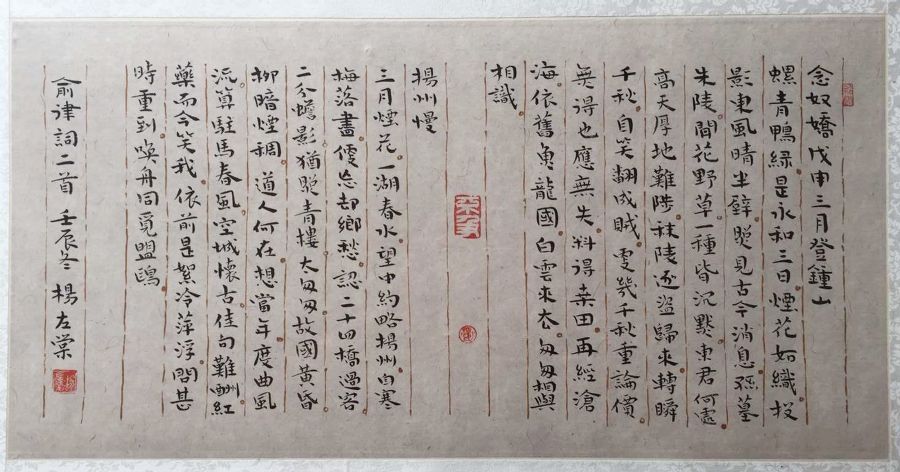 念奴嬌 戊申三月登鍾山
螺青鴨綠是永和三日煙花如織投
影東風晴半壁照見古今消息孫墓
朱陵閒花野草一種皆沉默東君何處
高天厚地難陟秣陵逐盜歸來轉瞬
千秋自笑翻成賊更幾千秋重論價
無得也應無失料得桑田再經滄
海依舊魚龍國白雲來去匆相與
相識
揚州慢
三月煙花一湖春水望中約略揚州自寒
梅落盡忘却鄉愁認二十四橋過客
二分蟾影猶照青樓太匆匆故國黃昏
柳暗煙稠道人何在想當年度曲風
流算駐馬春風空城懷古佳句難酬紅
藥而今笑我依前是絮冷萍浮問甚
時重到喚舟同覓盟鷗
俞律詞二首 壬辰冬 楊左棠